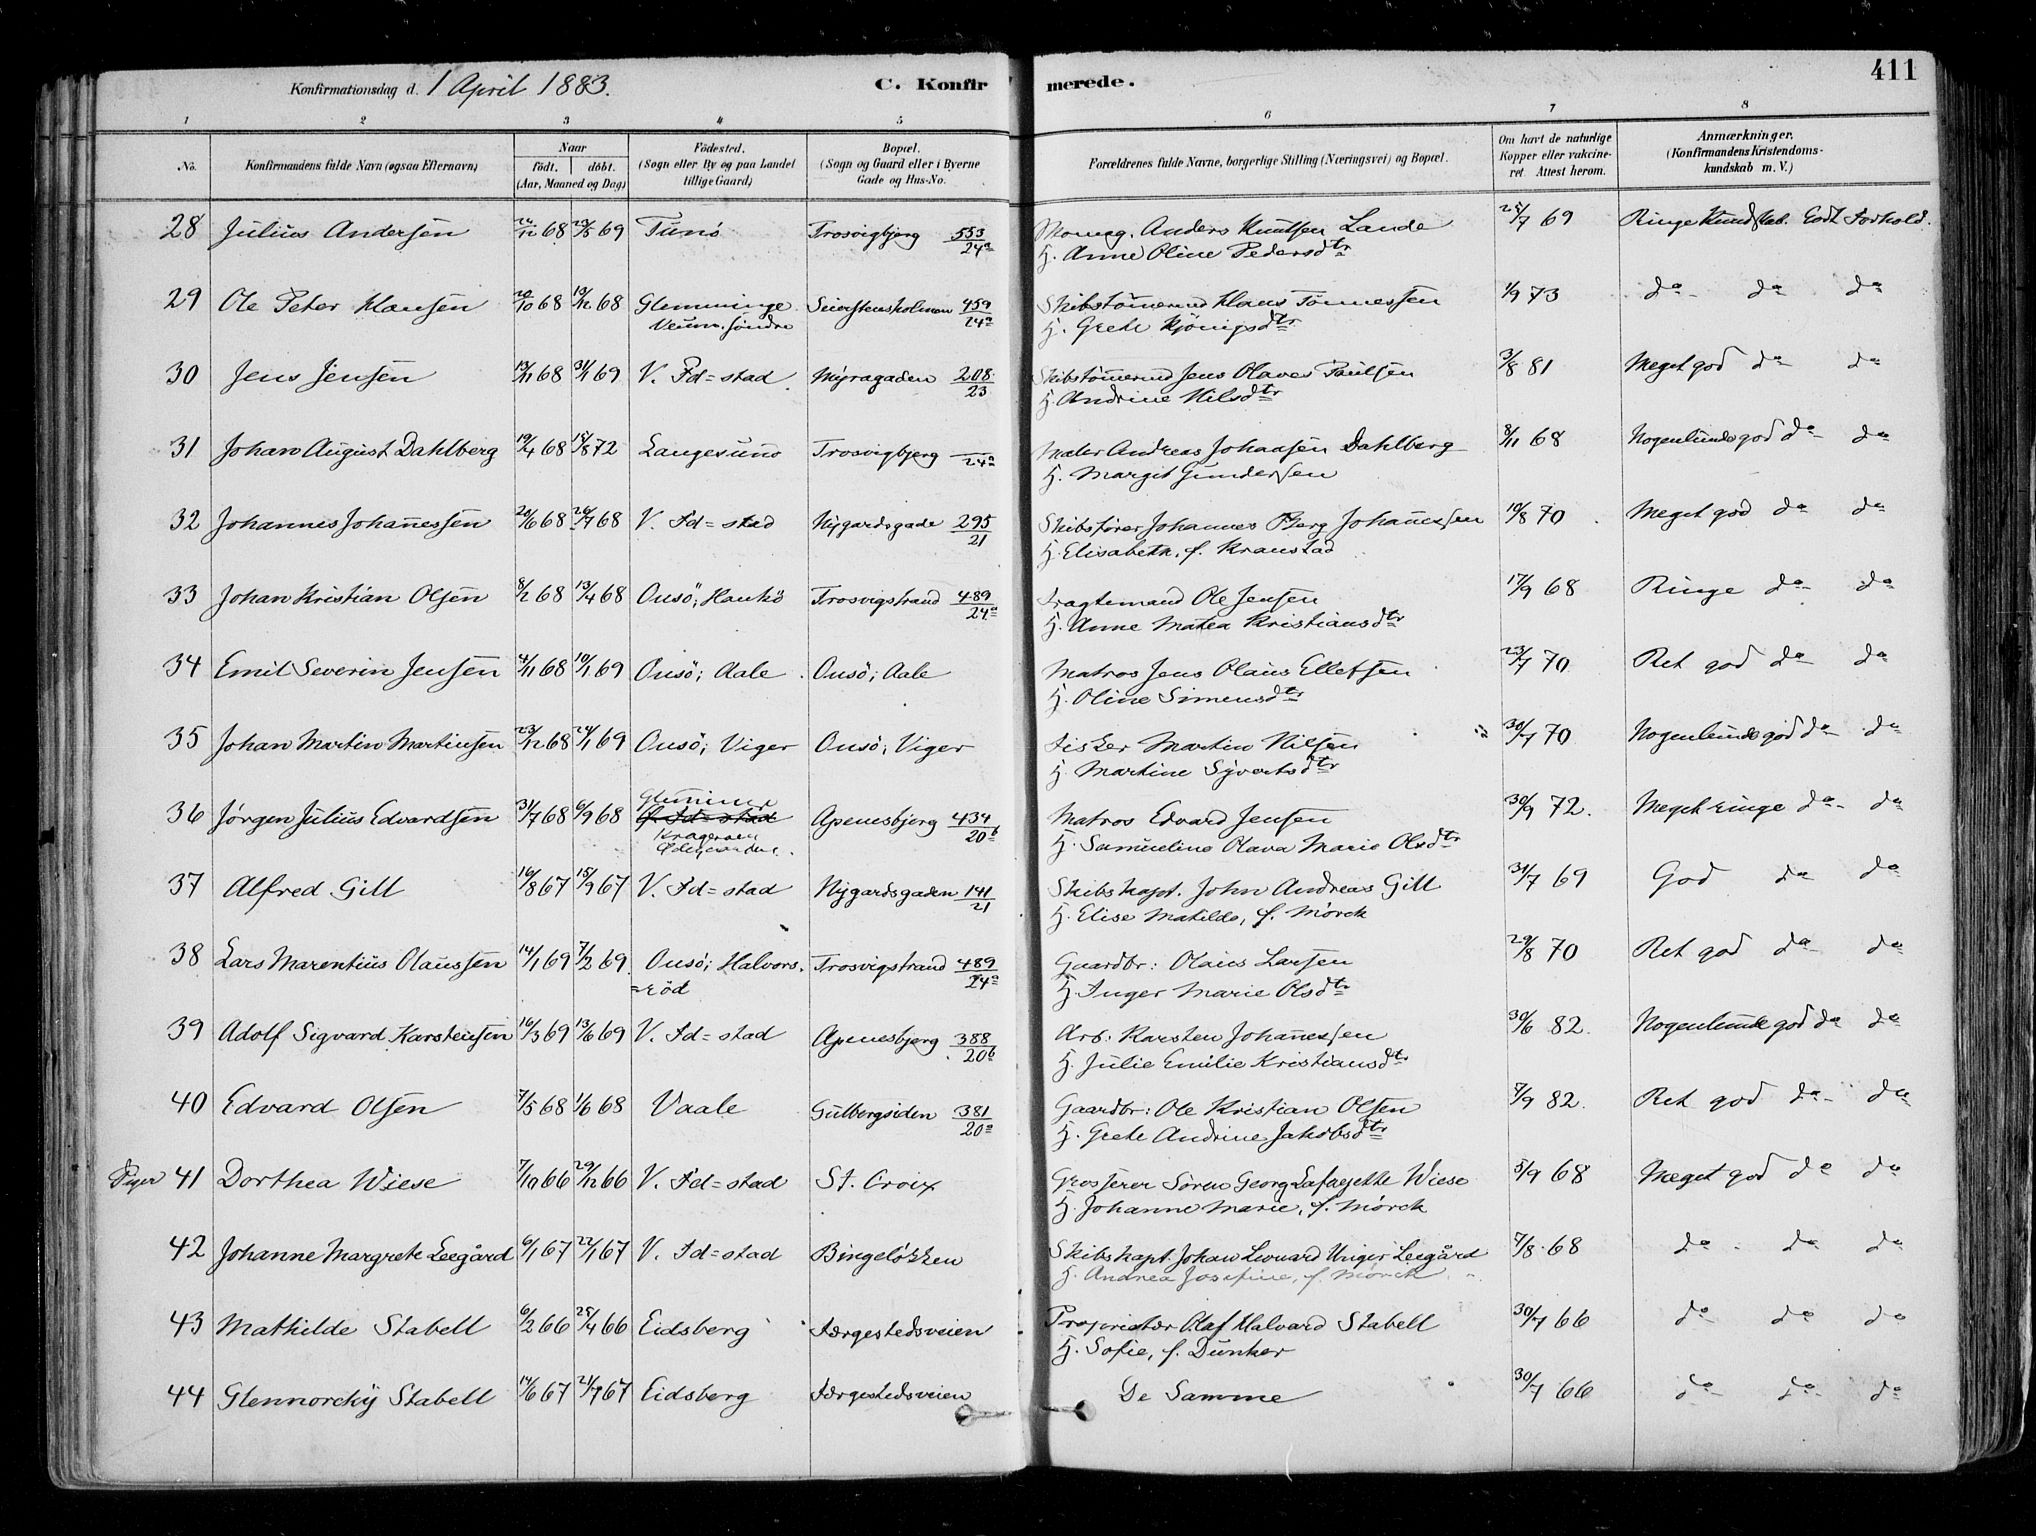 Konfirmationsdag d. 1 April 1883.
C. Konfirmerede.
411
1 2 3 4 5 6 7 8
No.
Konfirmandens fulde Navn (ogsaa Efternavn)
Naar
födt. döbt.
(Aar, Maaned og Dag)
Födested.
(Sogn eller By og paa Landet
tillige Gaard)
Bopæl.
(Sogn og Gaard eller i Byerne
Gade og Hus-No.
Forældrenes fulde Navne, borgerlige Stilling (Næringsvei) og Bopæl.
Om havt de naturlige
Kopper eller vakcine-
ret. Attest herom.
Anmærkninger.
(Konfirmandens Kristendoms-
kundskab m. V.)
28 Julius Andersen 68 69 Tunö Trosvigbjerg 553/24a Anders Knutsen Lande 25/7 69 Ringe Kundskab. Godt Forhold.
H. Anne Oline Pedersdtr
29 Ole Peter Hansen 20/10 68 13/12 68 Glemminge Seierstensholmen 459/24a Skibstömermd Hans Tönnessen 1/9 73 do do do
Veum söndre H. Grete Kjönigsdtr
30 Jens Jensen 13/11 68 31/1 69 V. Fd=stad Myragaden 208/23 Skibstömermd Jens Olaves Paulsen 3/8 81 Meget god do do
H. Andrine Nilsdtr
31 Johan August Dahlberg 19/4 68 18/8 72 Langesund Trosvigbjerg /24a Maler Andreas Johansen Dahlberg 8/11 68 Nogenlunde god do do
H. Margit Gundersen
32 Johannes Johannessen 20/6 68 26/7 68 V. Fd=stad Nygardsgade 295/21 Skibsförer Johannes Berg Johannessen 19/8 70 Meget god do do
H. Elisabeth, f. Kranstad
33 Johan Kristian Olsen 8/2 68 13/4 68 Onsö; Hankö Trosvigstrand 489/24a Fragtemand Ole Jensen 17/9 68 Ringe do do
H. Anne Matea Kristiansdtr
34 Emil Severin Jensen 4/11 68 10/1 69 Onsö; Aale Onsö; Aale Matros Jens Olaus Ellefsen 23/7 70 Ret god do do
H. Oline Simensdtr
35 Johan Martin Martinsen 23/12 68 24/1 69 Onsö; Viger Onsö; Viger Fisker Martin Nilsen 30/7 70 Nogenlunde god do do
H. Martine Syvertsdtr
Glemminge
36 Jørgen Julius Edvardsen 31/7 68 6/9 68 V. Fd=stad Apenesbjerg 434/20b Matros Edvard Jensen 30/9 72. Meget ringe do do
Krageröen
Ödegaarden. H. Samueline Olava Marie Olsdtr
37 Alfred Gill 16/8 67 15/9 67 V. Fd=stad Nygardsgaden 141/21 Skibskapt. John Andreas Gill 31/7 69 God do do
H. Elise Matilde, f. Mörck
38 Lars Marentius Olaussen 14/1 69 7/2 69 Onsö; Halvors- Trosvigstrand 489/24a Gaardbr: Olaus Larsen 29/8 70 Ret god do do
=röd H. Inger Marie Olsdtr
39 Adolf Sigvard Karstensen 16/3 69 13/6 69 V. Fd=stad Apenesbjerg 388/20b Arb: Karsten Johannessen 30/6 82. Nogenlunde god do do
H. Julie Emilie Kristiansdtr
40 Edvard Olsen 7/5 68 1/6 68 Vaale Gulbergsiden 381/20a Gaardbr: Ole Kristian Olsen 7/9 82. Ret god do do
H. Grete Andrine Jakobsdtr
Piger 41 Dorthea Wiese 7/10 66 29/12 66 V. Fd=stad St. Croix Grosserer Sören Georg Lafayette Wiese 5/9 68 Meget god do do
H. Johanne Marie, f. Mörck
42 Johanne Margrete Leegård 6/1 67 22/1 67 V. Fd=stad Bingeløkken Skibskapt. Johan Leonard Unger Leegård 7/8 68 do do do
H. Andrea Josefine, f. Mörck
43 Mathilde Stabell 6/2 66 25/4 66 Eidsberg Færgestedsveien Proprietær Olaf Halvard Stabell 30/7 66 do do do
H. Sofie, f. Dunker
44 Glennorchy Stabell 14/6 67 21/7 67 Eidsberg Færgestedsveien De Samme 30/7 66 do do do